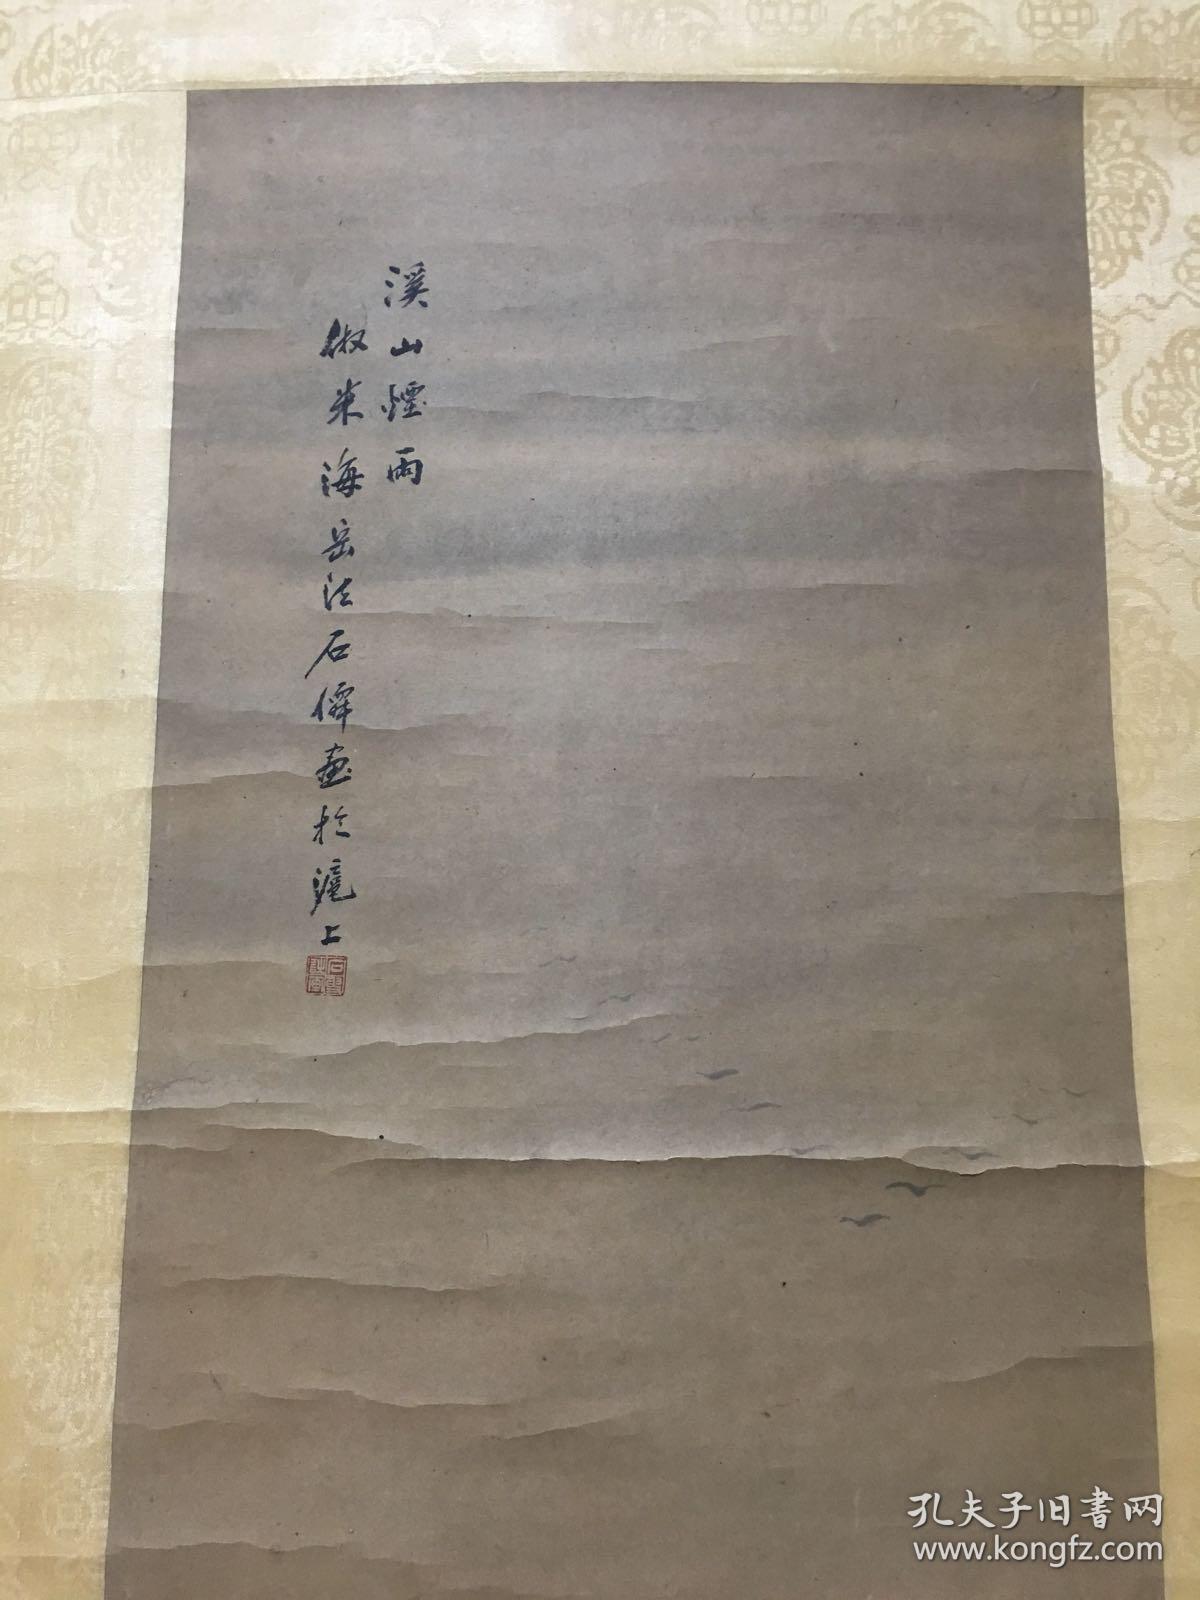 溪山煙雨
俶米海岳法石僊畫於滬上
孔夫子旧書网
www.kongfz.com